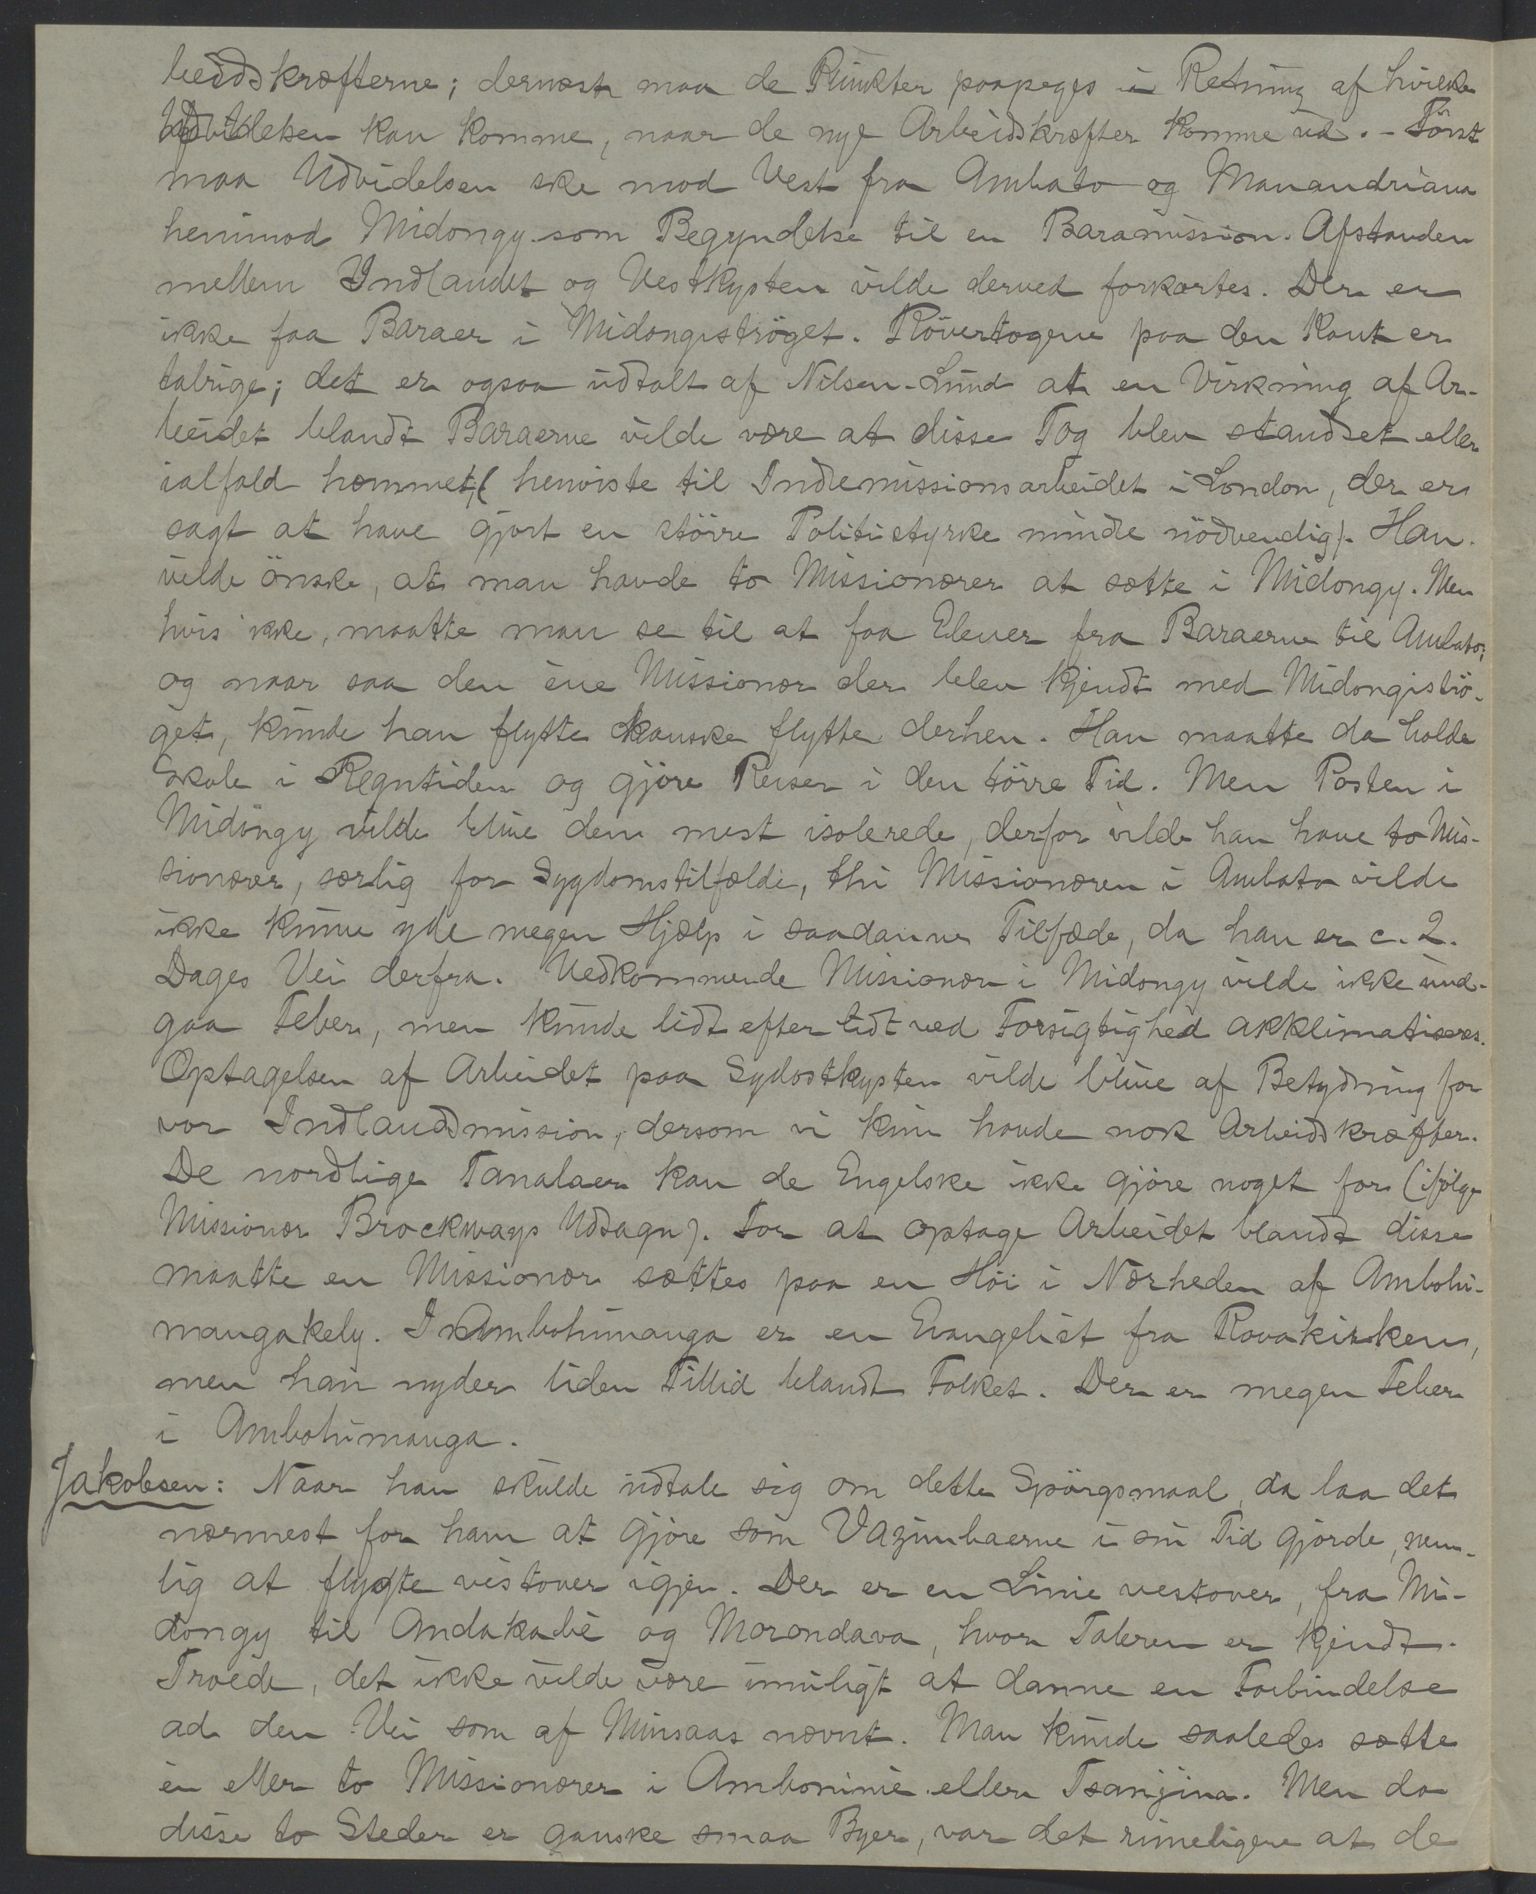 beidskræfterne; dernæst maa de Punkter paapeges i Retning af hvilke
Udvidelsen kan komme, naar de nye Arbeidskræfter komme ud. - Först
maa Udvidelsen ske mod Vest fra Ambato og Manandriana
henimod Midongy som Begyndelse til en Baramission. Afstanden
mellem Indlandet og Vestkysten vilde derved forkortes. Der er
ikke faa Baraer i Midongiströget. Rövertogene paa den Kant er
talrige; det er ogsaa udtalt af Nilsen-Lund at en Virkning af Ar-
beidet blandt Baraerne vilde være at disse Tog blev standset eller
ialfald hæmmet, (henviste til Indremissionsarbeidet i London, der er
sagt at have gjort en större Politistyrke mindre nödvendig). Han
vilde önske, at man havde to Missionærer at sætte i Midongy. Men
hvis ikke, maatte man se til at faa Elever fra Baraerne til Ambato;
og naar saa den ene Missionær der blev kjendt med Midongiströ-
get, kunde han flytte kanske flytte derhen. Han maatte da holde
Skole i Regntiden og gjöre Reiser i den törre Tid. Men Posten i
Midongy vilde blive den mest isolerede, derfor vilde han have to Mis-
sionærer, særlig for Sygdomstilfælde, thi Missionæren i Ambato vilde
ikke kunne yde megen Hjælp i saadanne Tilfæde, da han er c. 2.
Dages Vei derfra. Vedkommende Missionær i Midongy vilde ikke und-
gaa Feber, men kunde lidt efter lidt ved Forsigtighed akklimatiseres.
Optagelsen af Arbeidet paa Sydostkysten vilde blive af Betydning for
vor Indlandsmission, dersom vi kun havde nok Arbeidskræfter.
De nordlige Tanalaer kan de Engelske ikke gjöre noget for (ifölge
Missionær Brockways Udsagn). For at optage Arbeidet blandt disse
maatte en Missionær sættes paa en Höi i Nærheden af Ambohi-
mangakely. I Ambohimanga er en Evangelist fra Rovakirken,
men han nyder liden Tillid blandt Folket. Der er megen Feber
i Ambohimanga.
Jakobsen: Naar han skulde udtale sig om dette Spörgsmaal, da laa det
nærmest for ham at gjöre som Vazimbaerne i sin Tid gjorde, nem-
lig at flygte vestover igjen. Der er en Linie vestover, fra Mi-
dongy til Andakabe og Morondava, hvor Taleren er kjendt.
Troede, det ikke vilde være umuligt at danne en Forbindelse
ad den Vei som af Minsaas nævnt. Man kunde saaledes sætte
en eller to Missionærer i Ambonimie eller Tsanijina. Men da
disse to Steder er ganske smaa Byer, var det rimeligere at de